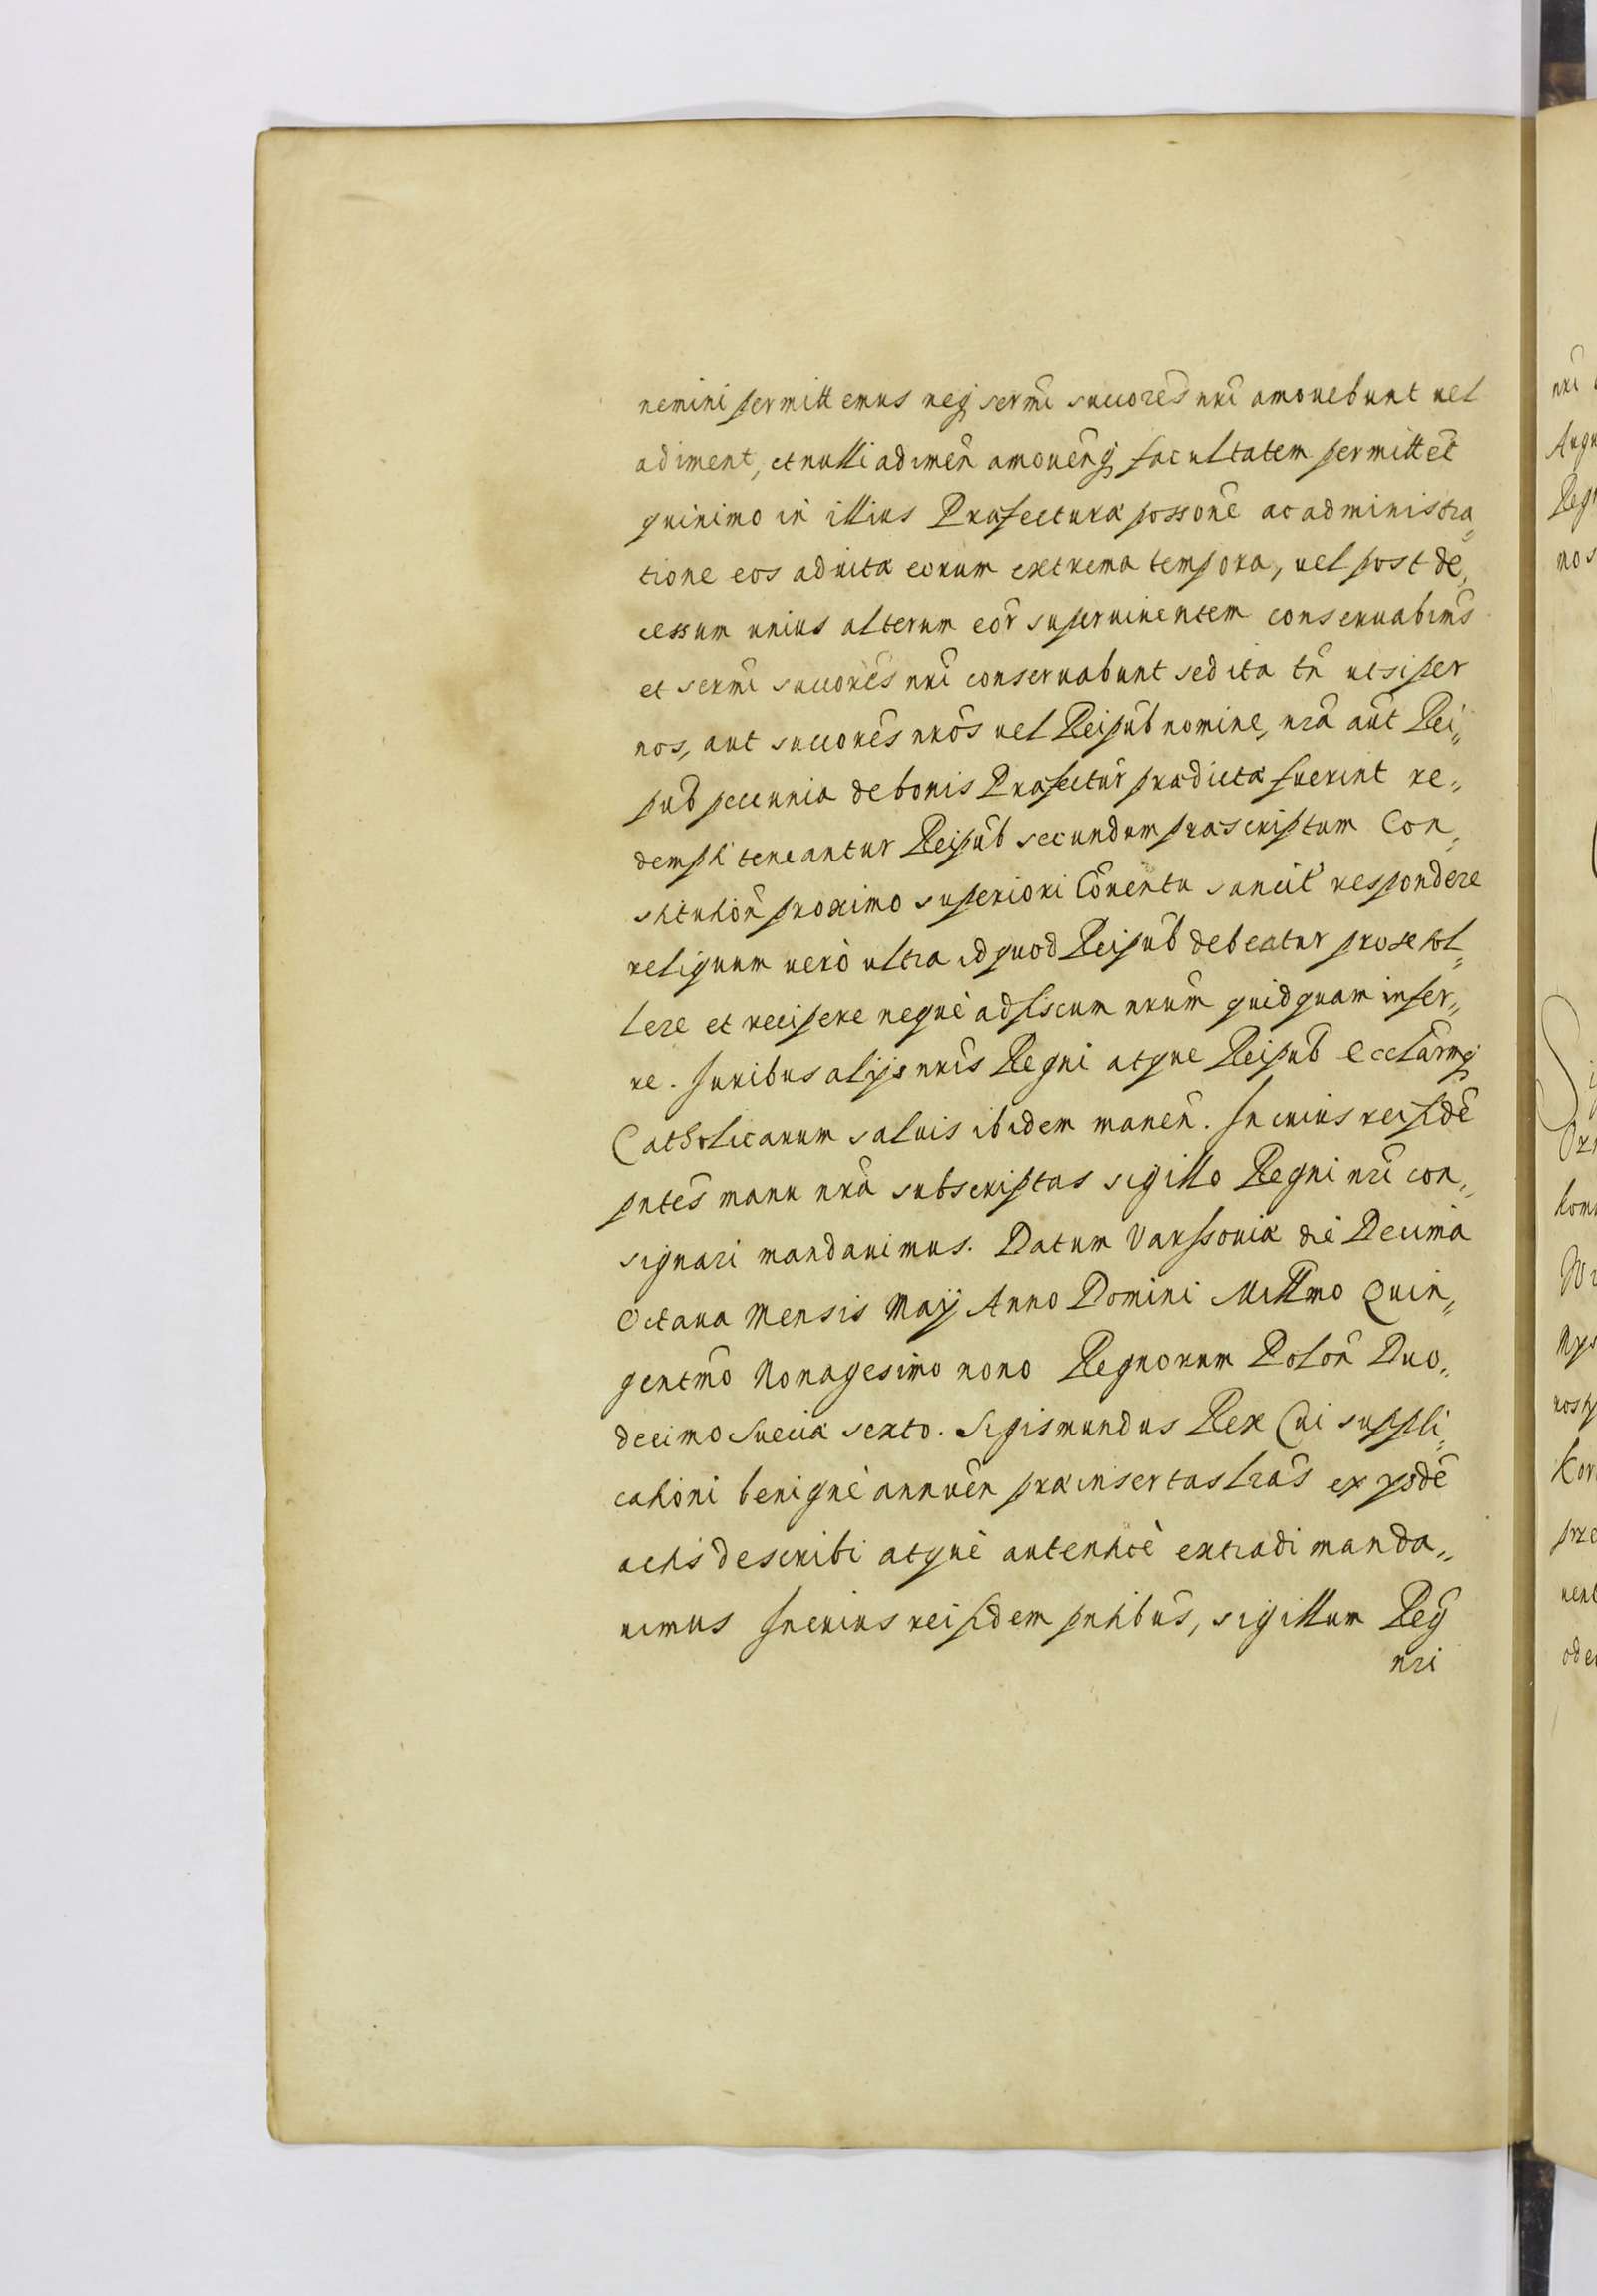 nemini permittemus neq; sermi̅ succore̅s nri̅ amouebunt uel
adiment, et nulli adimen̅ amouen̅q; facultatem permittet̅
quinimo in illius Præfecturæ possone̅ ac administra„
tione eos ad uitæ eorum extrema tempora, uel post de„
cessum unius alterum eor̅ superuiuentem conseruabim̅s
et sermi̅ succore̅s nri̅ conseruabunt sed ita tn̅ ut si per
nos, aut succore̅s nro̅s uel Reipub̅ nomine, nra̅ aut̅ Rei„
pub̅ pecunia de bonis Præfectur̅ prædictæ fuerint re„
dempti teneantur Reipub̅ secundum præscriptum Con„
stitution̅ proximo superiori Co̅uentu sancit̅ respondere
reliquum uerò ultra id quod Reipub̅ debeatur pro se tol„
lere et recipere nequè ad fiscum nrum̅ quidquam infer„
re. Juribus alijs nris̅ Regni atque Reipub̅ Eccl̅armq;
Catholicarum saluis ibidem manen̅. In cuius rei fide̅
pntes̅ manu nra̅ subscriptas sigillo Regni nri̅ con„
signari mandauimus. Datum Varssouiæ diè Decima
Octaua Mensis Maÿ Anno Domini Millmo̅ Quin„
gentmo̅ Nonagesimo nono Regnorum Polon̅ Duo„
decimo Sueciæ sexto. Sigismundus Rex Cui suppli„
cationi benignè annuen̅ præinsertas lras̅ ex ijsde̅
actis describi atquè autenticè extradi manda„
uimus In cuius rei fidem pntibus̅, sigillum Reg̅
nri